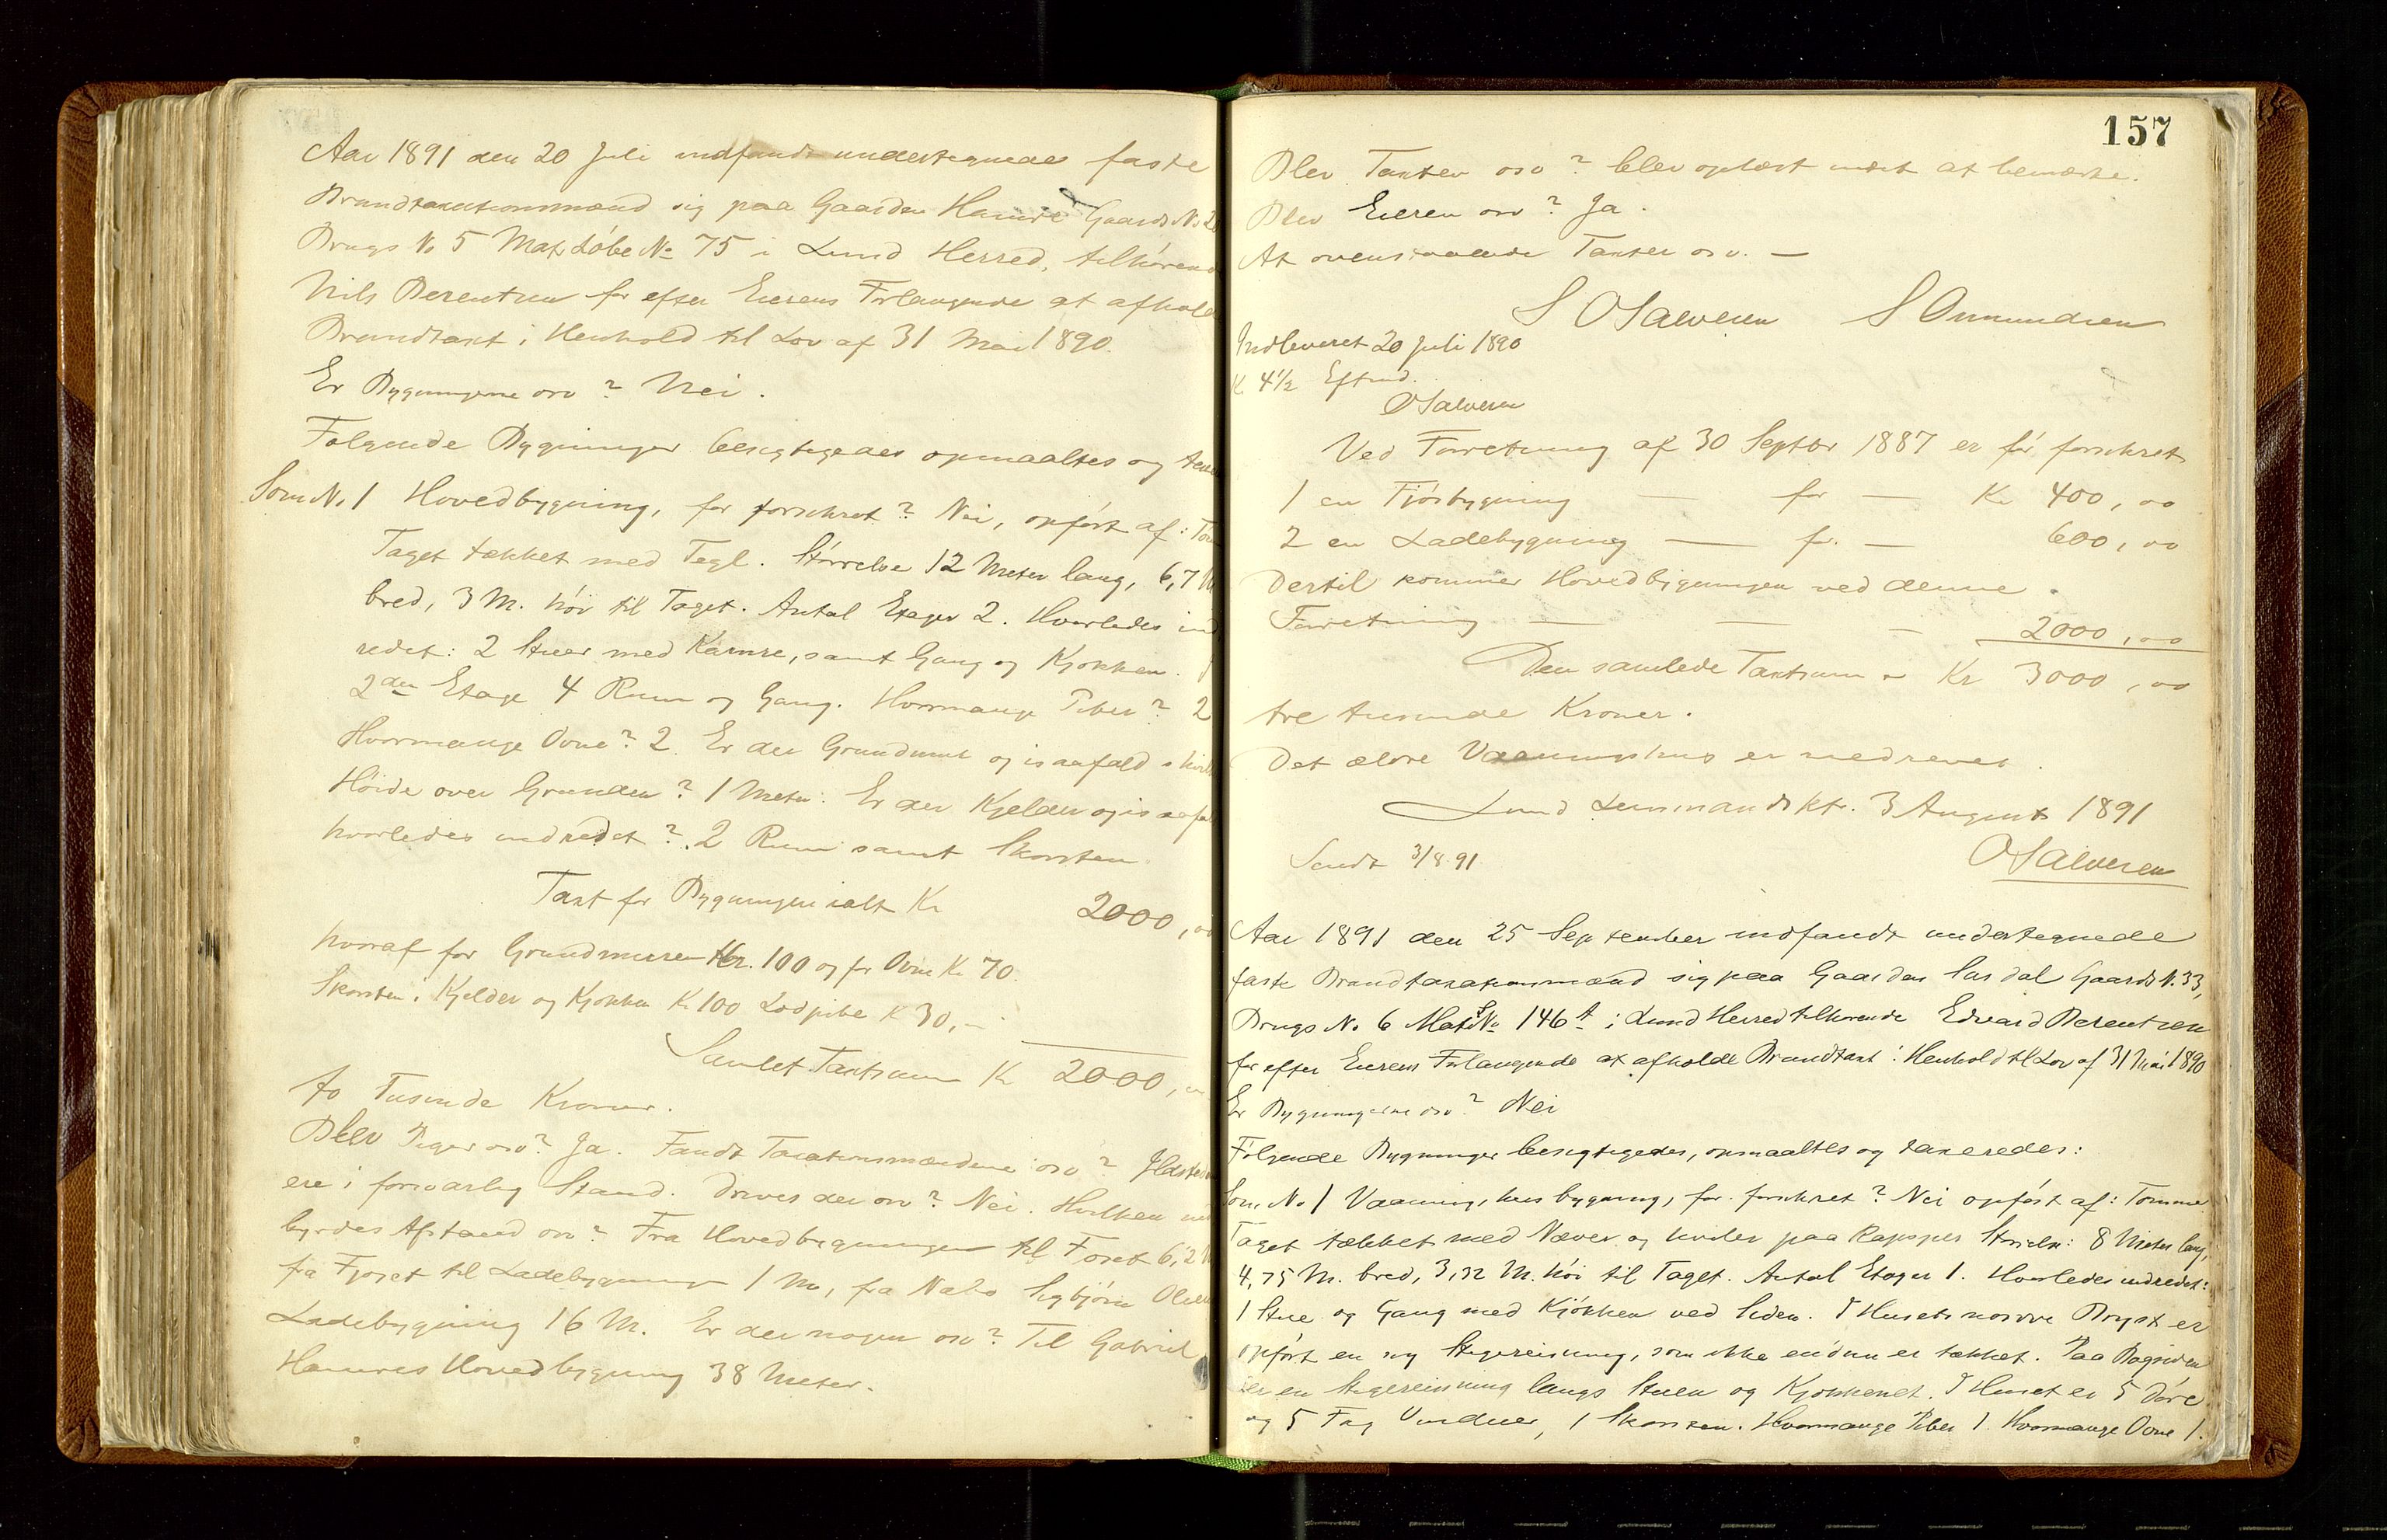 Aar 1891 den 20 Juli indfandt undertegnede faste
Brandtaxationsmænd sig paa Gaarden Hamre Gaards No
Brugs No 5 Matr Løbe No 75 i Lund Herred, tilhørende
Nils Berentsen for efter Eierens Forlangende at afholde
Brandtaxt i Henhold til Lov af 31 Mai 1890.
Er Bygningerne osv? Nei.
Følgende Bygninger besigtigedes opmaaltes og
Som No 1 Hovedbygning, før forsikret? Nei, opført af:
Taget tækket med Tegl. Størrelse 12 Meter lang, 6,7
bred, 3 M. høi til Taget. Antal Etager 2. Hvorledes ind
redet: 2 Stuer med Kamre, samt Gang og Kjøkken. I
2den Etage 4 Rum og Gang. Hvormange Piber? 2
Hvormange Ovne? 2. Er der Grundmur og isaafald
Høide over Grunden? 1 Meter. Er der Kjelder og isaafal
hvorledes indredet? 2 Rum samt Skorsten
Taxt for Bygningen ialt Kr 2000,00
hvoraf for Grundmuren Kr. 100 og for Ovne Kr 70.
Skorsten i Kjelder og Kjøkken Kr 100 Lodpibe Kr 30,-
Samlet Taxtsum Kr 2000,
to Tusinde Kroner.
Blev Piger osv? Ja. Fandt Taxationsmændene osv? Ildsted
ere i forsvarlig Stand. Drives der osv? Nei. Hvilken
byrdes Afstand osv? Fra Hovedbygningen til Fjøset 6,2
fra Fjøset til Ladebygningen 1 M, fra Nabo Sigbjørn Olsens
Ladebygning 16 M. Er der nogen osv? Til Gabriel
Hamres Hovedbygning 38 Meter.
157
Blev Taxten osv? blev oplæst intet at bemærke.
Blev Eieren osv? Ja.
At ovenstaaende Taxter osv. —
S O Salvesen S Omundsen
Indleveret 20 Juli 1890
K 4 1/2 Efterm.
O Salvesen
Ved Forretning af 30 Septbr 1887 er før forsikret
1 en Fjøsbygning — for — Kr 400,00
2 en Ladebygning — for — 600,00
Dertil kommer Hovedbygningen ved denne
Forretning — — — 2000,00
Den samlede Taxtsum Kr 3000,00
tre tusinde Kroner.
Det ældre Vaaningshus er nedrevet.
Lund Lensmandsktr. 3 August 1891
Sendt 3/8 91 O Salvesen
Aar 1891 den 25 September indfandt undertegnede
faste Brandtaxationsmænd sig paa Gaarden Gaards N. 33,
Brugs No 6 Matr No 146 i Lund Herred tilhørende Edvard Berentsen
for efter Eierens Forlangende at afholde Brandtaxt i Henhold til Lov af 31 Mai 1890
Er Bygningerne osv? Nei
Følgende Bygninger besigtigedes, opmaaltes og taxeredes:
Som No 1 Vaaningshusbygning, før forsikret? Nei opført af: Tømmer
Taget tækket med Næver og hviler paa Størrelse: 8 Meter lang,
4,75 M. bred, 3,32 M. høi til Taget. Antal Etager 1. Hvorledes indredet:
1 Stue og Gang med Kjøkken ved Siden. I Husets nordre Bryst er
opført en ny Stugereisning, som ikke endnu er tækket. Paa Bagsiden
er en Stugereisning langs Stuen og Kjøkkenet. I Huset er 5 Døre
og 5 Fag Vinduer, 1 Skorsten. Hvormange Piber 1. Hvormange Ovne 1.